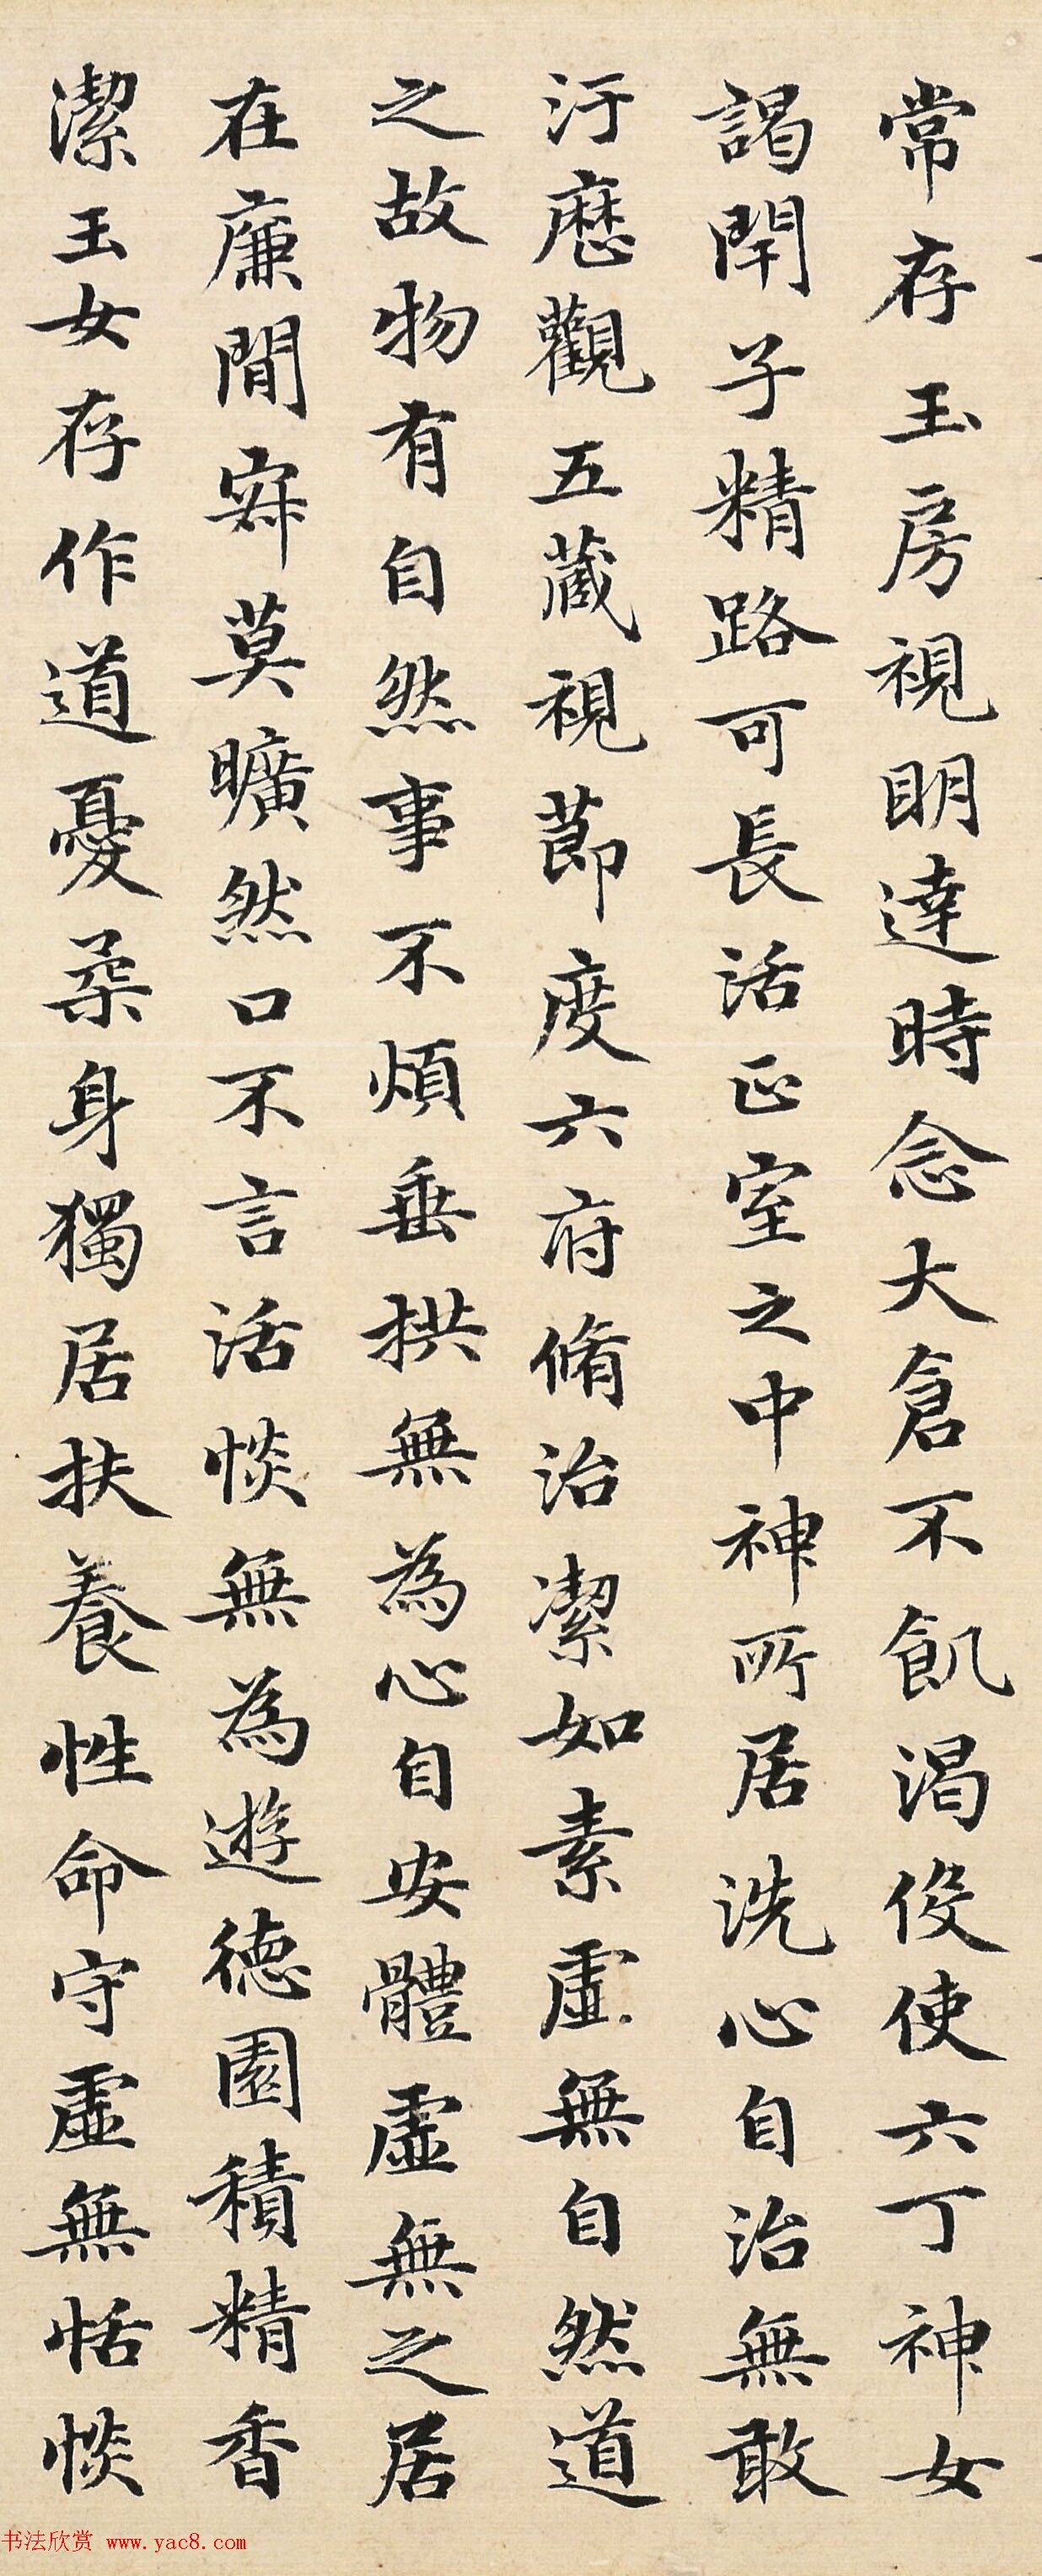 常存玉房視明達時念大倉不飢渴役使六丁神女
謁閈子精路可長活正室之中神所居洗心自治無敢
汙歷觀五藏視節度六府脩治潔如素虛無自然道
之故物有自然事不煩垂拱無為心自安體虛無之居
在廉間寂莫曠然口不言活惔無為遊德園積精香
潔玉女存作道憂柔身獨居扶養性命守虛無恬惔
书法欣赏 www.yac8.com